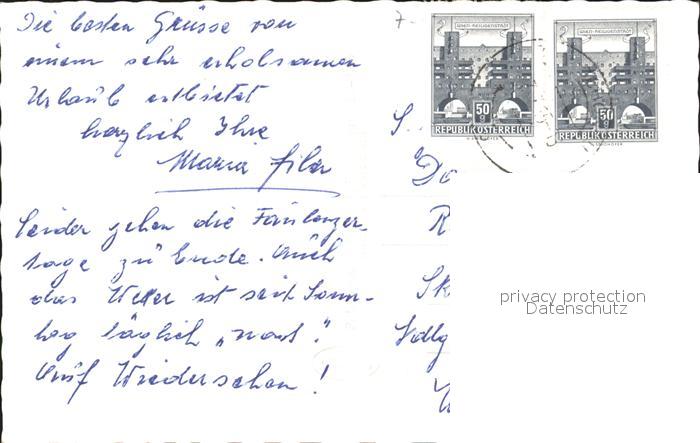 Die besten Grüsse von
einem sehr erholsamen
Urlaub entbietet
herzlich Ihre
Maria
Leider gehen die Faulenzer-
tage zu Ende. Auch
das Wetter ist seit Sonn-
tag täglich „nass".
Auf Wiedersehen!
7-
WIEN-HEILIGENSTADT
50
g
REPUBLIK ÖSTERREICH
WIEN-HEILIGENSTADT
50
g
REPUBLIK ÖSTERREICH
S.
Do
R
Sk
privacy protection
Datenschutz